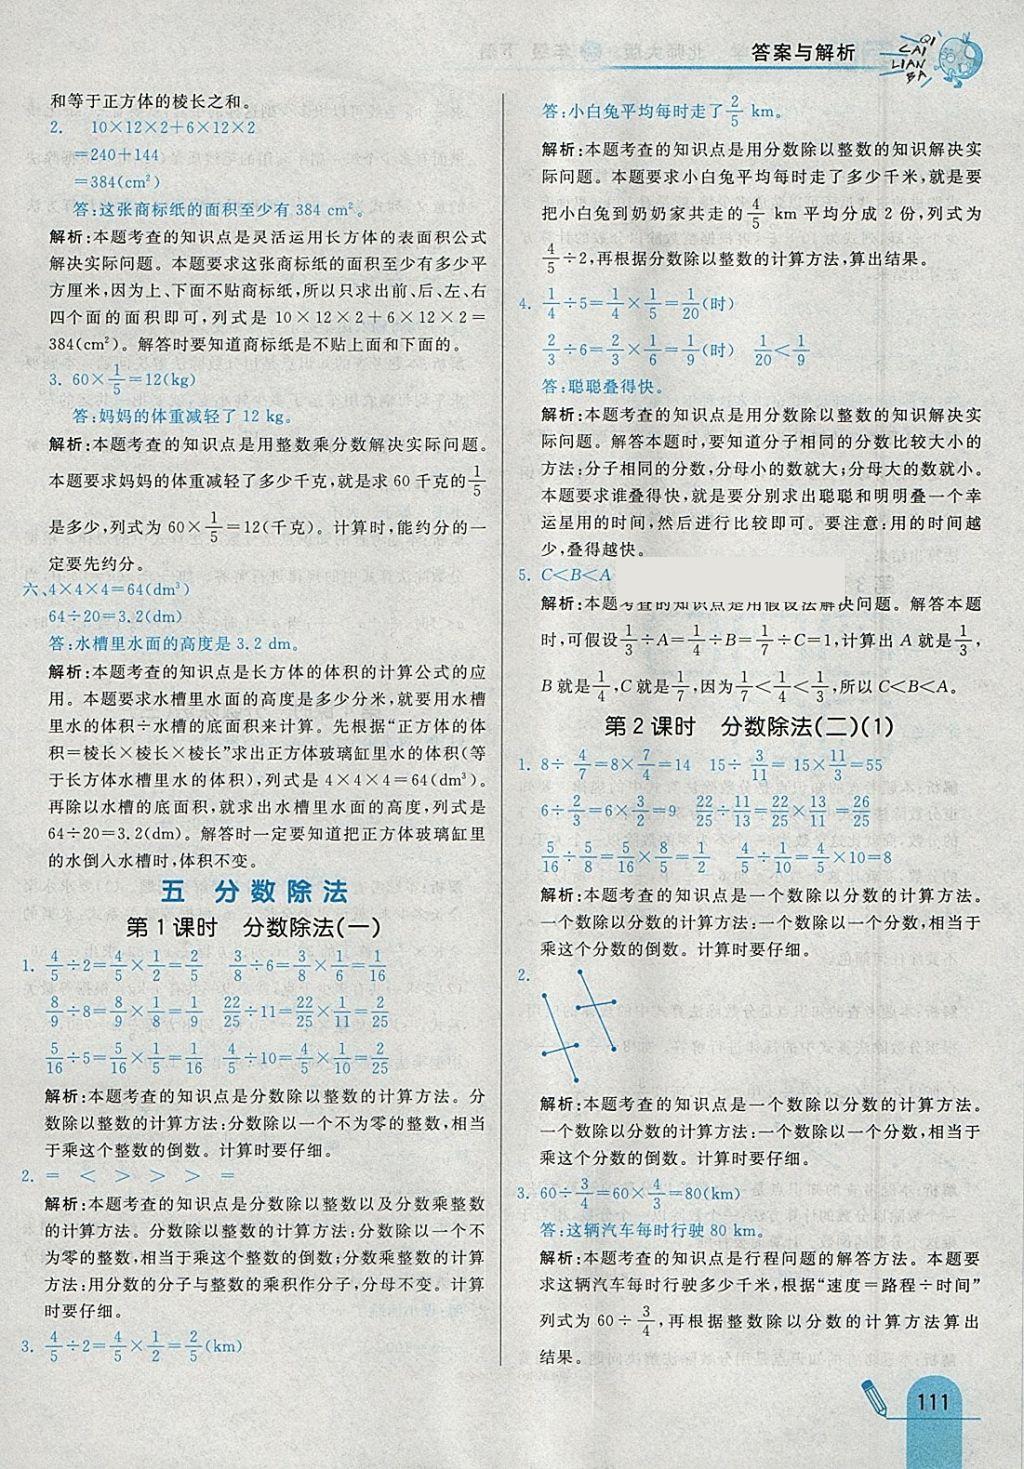 答案与解析
QI
CAI
LIAN
BA
和等于正方体的棱长之和。
2. 10×12×2+6×12×2
=240+144
=384(cm²)
答:这张商标纸的面积至少有 384 cm²。
解析:本题考查的知识点是灵活运用长方体的表面积公式
解决实际问题。本题要求这张商标纸的面积至少有多少平
方厘米,因为上、下面不贴商标纸,所以只求出前、后、左、右
四个面的面积即可,列式是 10×12×2+6×12×2=
384(cm²)。解答时要知道商标纸是不贴上面和下面的。
3. 60×1/5=12(kg)
答:妈妈的体重减轻了 12 kg。
解析:本题考查的知识点是用整数乘分数解决实际问题。
本题要求妈妈的体重减轻了多少千克,就是求 60 千克的1/5
是多少,列式为 60×1/5=12(千克)。计算时,能约分的一
定要先约分。
六、4×4×4=64(dm³)
64÷20=3.2(dm)
答:水槽里水面的高度是 3.2 dm。
解析:本题考查的知识点是长方体的体积的计算公式的应
用。本题要求水槽里水面的高度是多少分米,就要用水槽
里水的体积÷水槽的底面积来计算。先根据“正方体的体
积=棱长×棱长×棱长”求出正方体玻璃缸里水的体积(等
于长方体水槽里水的体积),列式是 4×4×4=64(dm³)。
再除以水槽的底面积,就求出水槽里水面的高度,列式是
64÷20=3.2(dm)。解答时一定要知道把正方体玻璃缸里
的水倒入水槽时,体积不变。
五 分数除法
第 1 课时 分数除法(一)
1. 4/5÷2=4/5×1/2=2/5 3/8÷6=3/8×1/6=1/16
8/9÷8=8/9×1/8=1/9 22/25÷11=22/25×1/11=2/25
5/16÷5=5/16×1/5=1/16 4/5÷10=4/5×1/10=2/25
解析:本题考查的知识点是分数除以整数的计算方法。分
数除以整数的计算方法:分数除以一个不为零的整数,相当
于乘这个整数的倒数。计算时要仔细。
2. = < > > > =
解析:本题考查的知识点是分数除以整数以及分数乘整数
的计算方法。分数除以整数的计算方法:分数除以一个不
为零的整数,相当于乘这个整数的倒数;分数乘整数的计算
方法:用分数的分子与整数的乘积作分子,分母不变。计算
时要仔细。
3. 4/5÷2=4/5×1/2=2/5(km)
答:小白兔平均每时走了2/5 km。
解析:本题考查的知识点是用分数除以整数的知识解决实
际问题。本题要求小白兔平均每时走了多少千米,就是要
把小白兔到奶奶家共走的4/5 km 平均分成 2 份,列式为
4/5÷2,再根据分数除以整数的计算方法,算出结果。
4. 1/4÷5=1/4×1/5=1/20(时)
2/3÷6=2/3×1/6=1/9(时) 1/20<1/9
答:聪聪叠得快。
解析:本题考查的知识点是用分数除以整数的知识解决实
际问题。解答本题时,要知道分子相同的分数比较大小的
方法:分子相同的分数,分母小的数就大;分母大的数就小。
本题要求谁叠得快,就是要分别求出聪聪和明明叠一个幸
运星用的时间,然后进行比较即可。要注意:用的时间越
少,叠得越快。
5. C<B<A
解析:本题考查的知识点是用假设法解决问题。解答本题
时,可假设1/3÷A=1/4÷B=1/7÷C=1,计算出 A 就是1/3,
B 就是1/4,C 就是1/7,因为1/7<1/4<1/3,所以 C<B<A。
第 2 课时 分数除法(二)(1)
1. 8÷4/7=8×7/4=14 15÷3/11=15×11/3=55
6÷2/3=6×3/2=9 22/25÷11/13=22/25×13/11=26/25
5/16÷5/8=5/16×8/5=1/2 4/5÷1/10=4/5×10=8
解析:本题考查的知识点是一个数除以分数的计算方法。
一个数除以分数的计算方法:一个数除以一个分数,相当于
乘这个分数的倒数。计算时要仔细。
2.
解析:本题考查的知识点是一个数除以分数的计算方法。
一个数除以分数的计算方法:一个数除以一个分数,相当于
乘这个分数的倒数。计算时要仔细。
3. 60÷3/4=60×4/3=80(km)
答:这辆汽车每时行驶 80 km。
解析:本题考查的知识点是行程问题的解答方法。本题要
求这辆汽车每时行驶多少千米,根据“速度=路程÷时间”
列式为 60÷3/4,再根据整数除以分数的计算方法算出
结果。
111